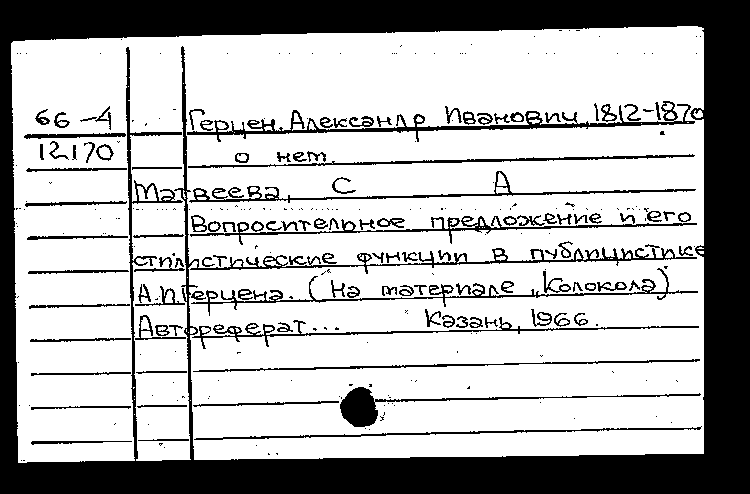 66-4 Герцен, Александр Иванович, 1812-1870
12170 о нем.
Матвеева, С А
Вопросительное предложение и его
стилистические функции в публицистике
А.И.Герцена. (На материале „Колокола)
Автореферат... Казань, 1966.